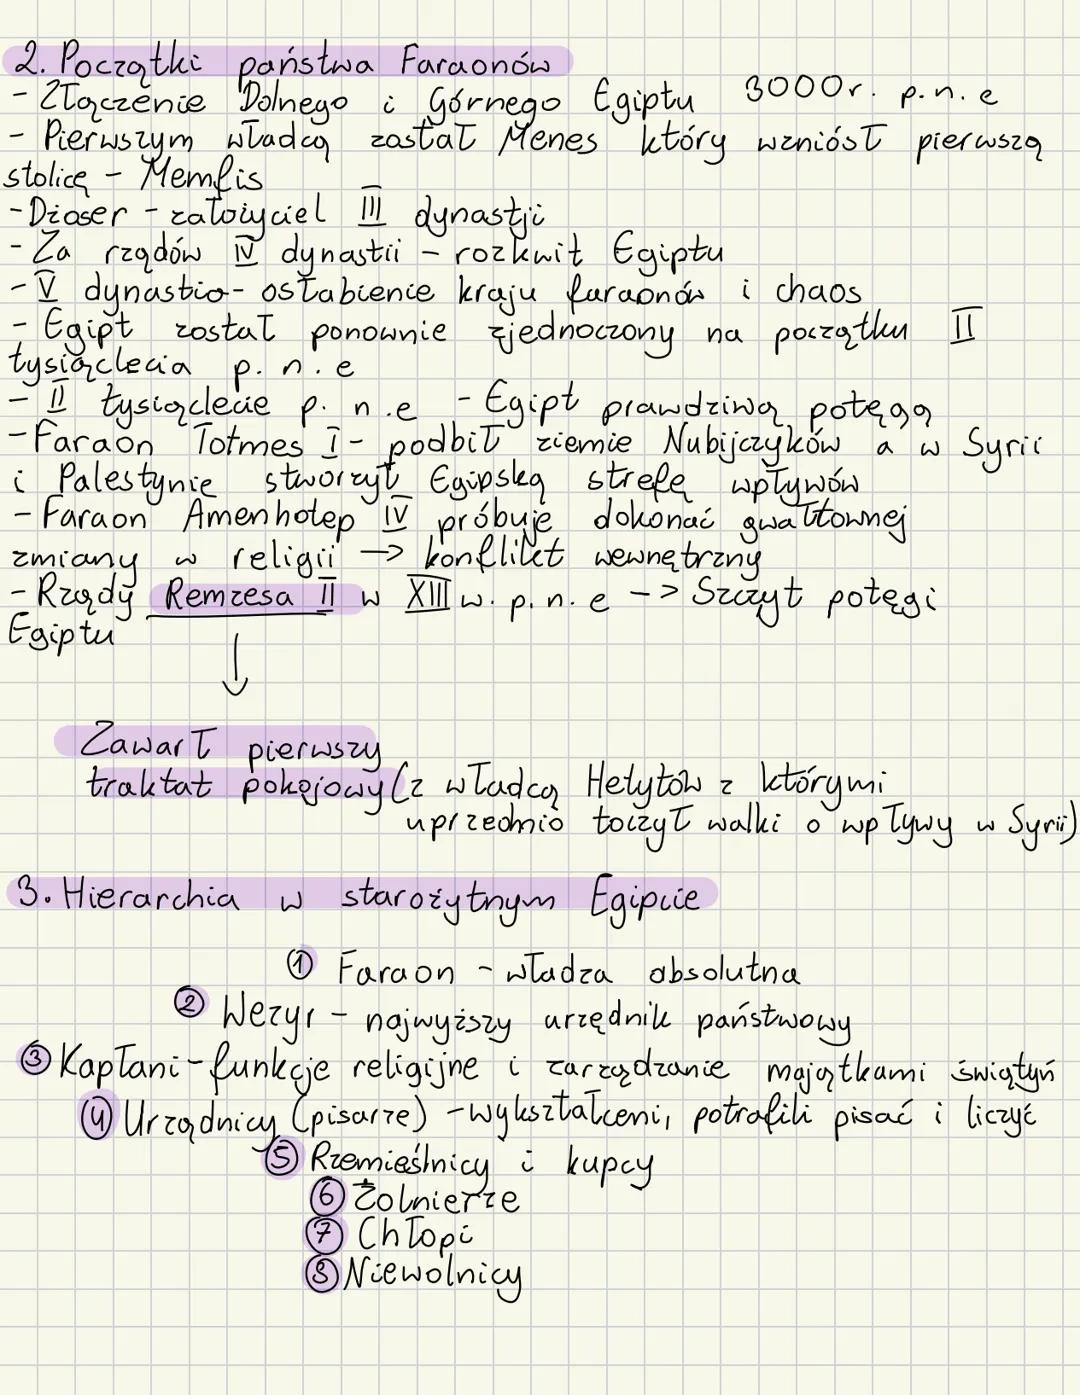 2. Początki państwa Faraonów
- Złączenie Dolnego i Górnego Egiptu 3000r. p.n.e
- Pierwszym władcą został Menes który wzniósł pierwszą
stolicę - Memfis
- Dżoser - założyciel III dynastji
- Za rządów IV dynastii - rozkwit Egiptu
- V dynastia - osłabienie kraju faraonów i chaos
- Egipt został ponownie zjednoczony na początku II
tysiąclecia p.n.e
- II tysiąclecie p.n.e - Egipt prawdziwą potęgą
- Faraon Totmes I - podbił ziemie Nubijczyków a w Syrii
i Palestynie stworzył Egipską strefę wpływów
- Faraon Amenhotep IV próbuje dokonać gwałtownej
zmiany w religii → konflikt wewnętrzny
- Rządy Remzesa II w XIII w. p.n.e -> Szczyt potęgi
Egiptu
↓
Zawarł pierwszy
traktat pokojowy (z władcą Hetytów z którymi
uprzednio toczył walki o wpływy w Syrii)
3. Hierarchia w starożytnym Egipcie
① Faraon - władza absolutna
② Wezyr - najwyższy urzędnik państwowy
③ Kapłani - funkcje religijne i zarządzanie majątkami świątyń
④ Urządnicy (pisarze) - wykształceni, potrafili pisać i liczyć
⑤ Rzemieślnicy i kupcy
⑥ Żołnierze
⑦ Chłopi
⑧ Niewolnicy